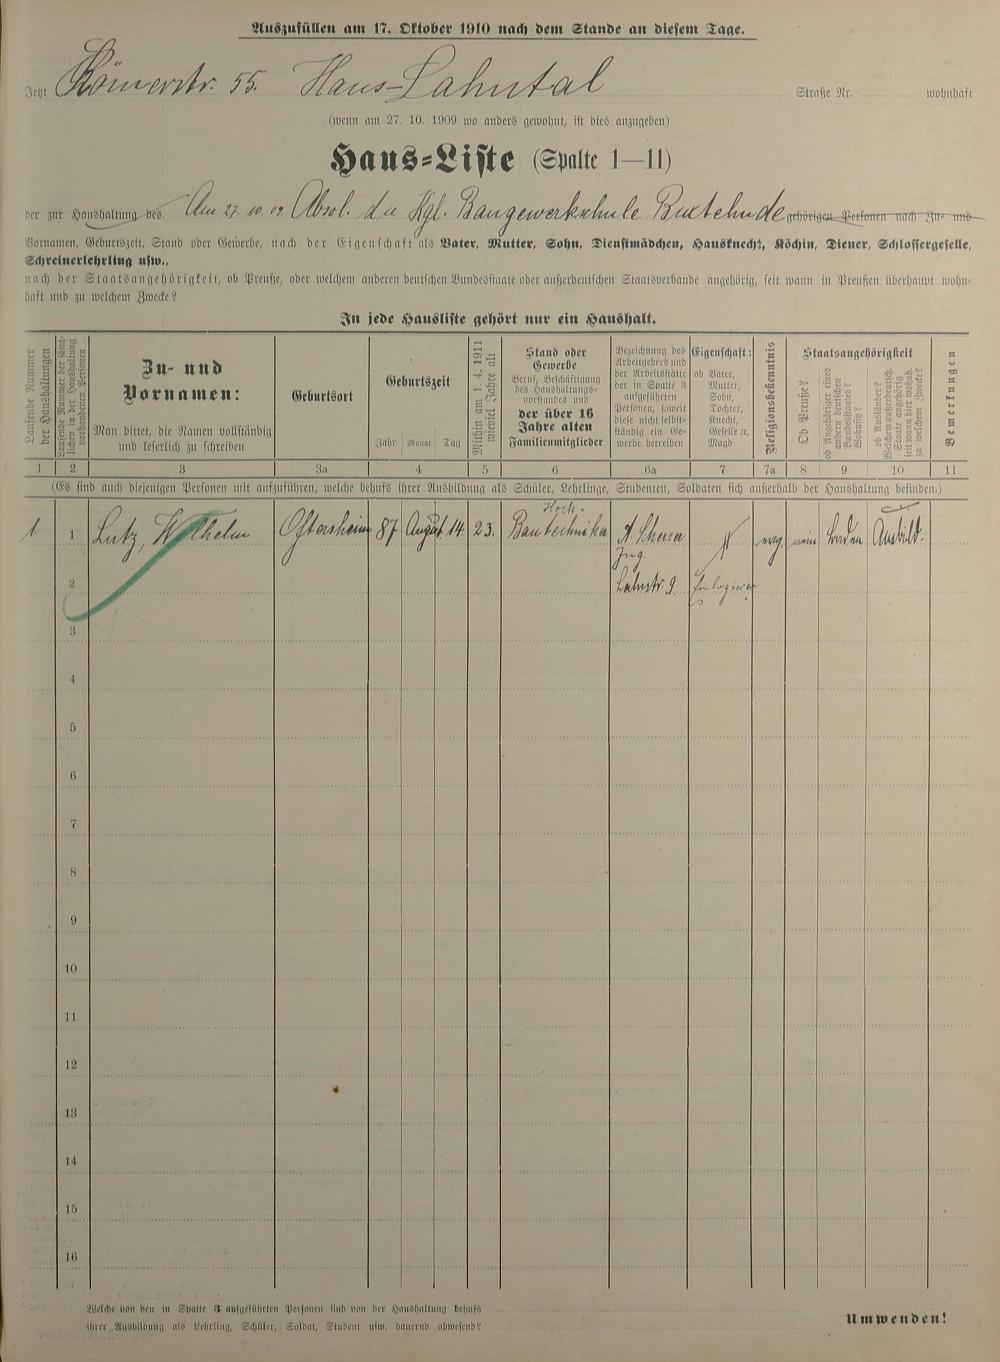 Auszufüllen am 17. Oktober 1910 nach dem Stande an diesem Tage.
Jetzt Römerstr. 55. Haus-Lahntal Straße Nr. wohnhaft
(wenn am 27. 10. 1909 wo anders gewohnt, ist dies anzugeben)
Haus=Liste (Spalte 1—11)
der zur Haushaltung des Am 27. 10. 09. Absol. der Kgl. Baugewerkschule Buxtehude gehörigen Personen nach Zu- und
Vornamen, Geburtszeit, Stand oder Gewerbe, nach der Eigenschaft als Vater, Mutter, Sohn, Dienstmädchen, Hausknecht, Köchin, Diener, Schlossergeselle,
Schreinerlehrling usw.,
nach der Staatsangehörigkeit, ob Preuße, oder welchem anderen deutschen Bundesstaate oder außerdeutschen Staatsverbande angehörig, seit wann in Preußen überhaupt wohn-
haft und zu welchem Zwecke?
In jede Hausliste gehört nur ein Haushalt.
Laufende Nummer
der Haushaltungen
Laufende Nummer der sämt-
lichen in der Haushaltung
vorhandenen Personen
Zu- und
Vornamen:
Man bittet, die Namen vollständig
und leserlich zu schreiben
Geburtsort
Geburtszeit
Jahr Monat Tag
Mithin am 1. 4. 1911
wieviel Jahre alt
Stand oder
Gewerbe
Beruf, Beschäftigung
des Haushaltungs-
vorstandes und
der über 16
Jahre alten
Familienmitglieder
Bezeichnung des
Arbeitgebers und
der Arbeitsstätte
der in Spalte 3
aufgeführten
Personen, soweit
diese nicht selbst-
ständig ein Ge-
werbe betreiben
Eigenschaft:
ob Vater,
Mutter,
Sohn,
Tochter,
Knecht,
Geselle 2c,
Magd
Religionsbekenntnis
Staatsangehörigkeit
Ob Preuße?
ob Angehöriger eines
andern deutschen
Bundesstaates?
Wohnsitz?
ob Ausländer?
Welchem außerdeutsch.
Staate angehörig
seit wann hier wohnh.
zu welchem Zwecke?
Bemerkungen
1 2 3 3a 4 5 6 6a 7 7a 8 9 10 11
(Es sind auch diejenigen Personen mit aufzuführen, welche behufs ihrer Ausbildung als Schüler, Lehrlinge, Studenten, Soldaten sich außerhalb der Haushaltung befinden.)
Hoch-
1. 1 Lutz, Wilhelm Oftersheim 87 August 14 23. Bautechniker A. evg. nein Baden Ausbild.
Ing.
2 Lahnstr. 9. Einlogierer
3
4
5
6
7
8
9
10
11
12
13
14
15
16
Welche von den in Spalte 3 aufgeführten Personen sind von der Haushaltung behufs
ihrer Ausbildung als Lehrling, Schüler, Soldat, Student usw. dauernd abwesend?
Umwenden!